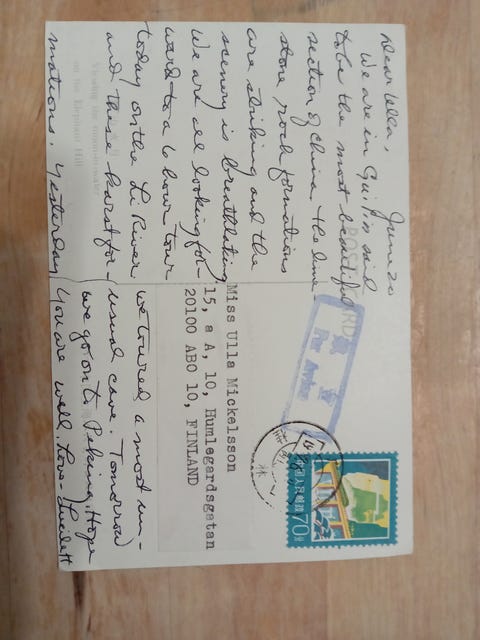 June 20
Dear Ulla,
We are in Guilin said
to be the most beautiful
section of China - the lime-
stone rock formations
are striking and the
scenery is breathtaking
We are all looking for-
ward to a 6 hour tour
today on the Li River
and these karst for-
mations. Yesterday
we toured a most un-
usual cave. Tomorrow
we go on to Peking. Hope
you are well. Love -
POST CARD
航空
Par Avion
Miss Ulla Mickelsson
15, a A, 10, Humlegardsgatan
20100 ABO 10, FINLAND
中国人民邮政
70分
Viewing the
on the Elephant Hill